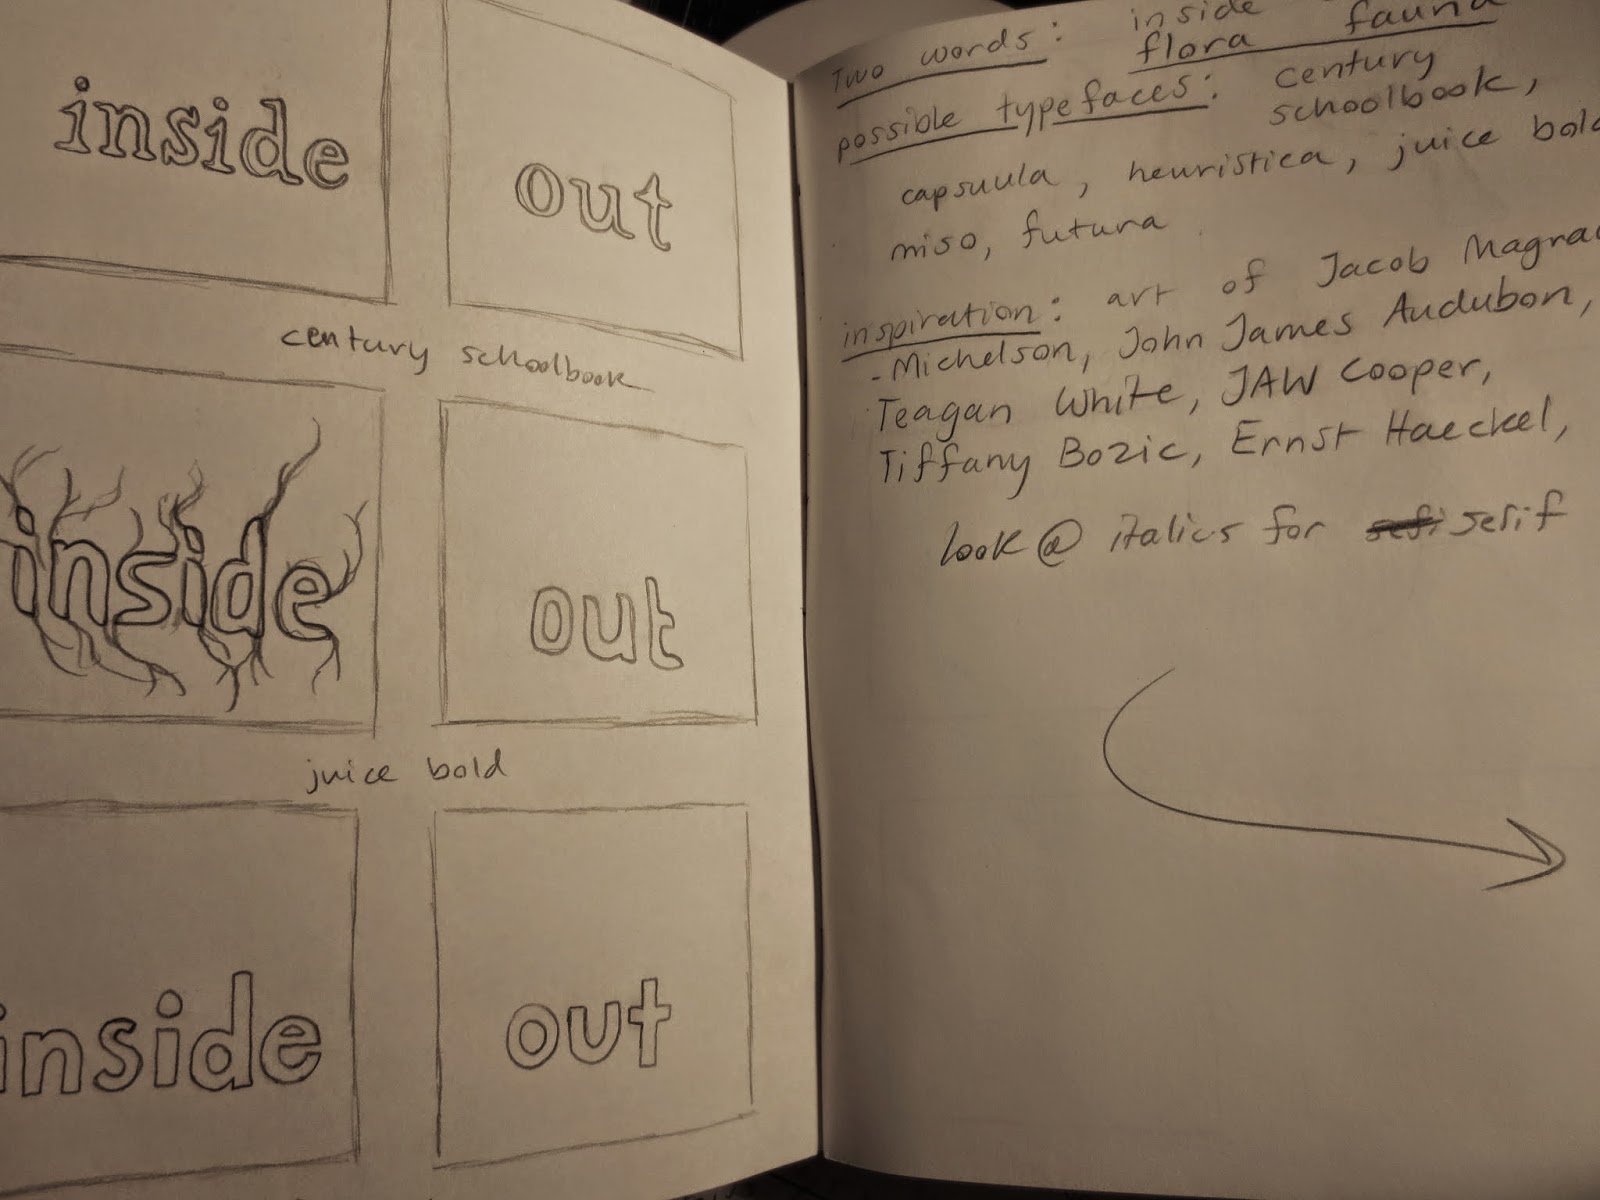 inside
out
century schoolbook
inside
out
juice bold
inside
out
Two words: inside
flora fauna
possible typefaces: century
schoolbook,
capsuula, heuristica, juice bold
miso, futura
inspiration: art of Jacob
-Michelson, John James Audubon,
Teagan White, JAW Cooper,
Tiffany Bozic, Ernst Haeckel,
look @ italics for serif